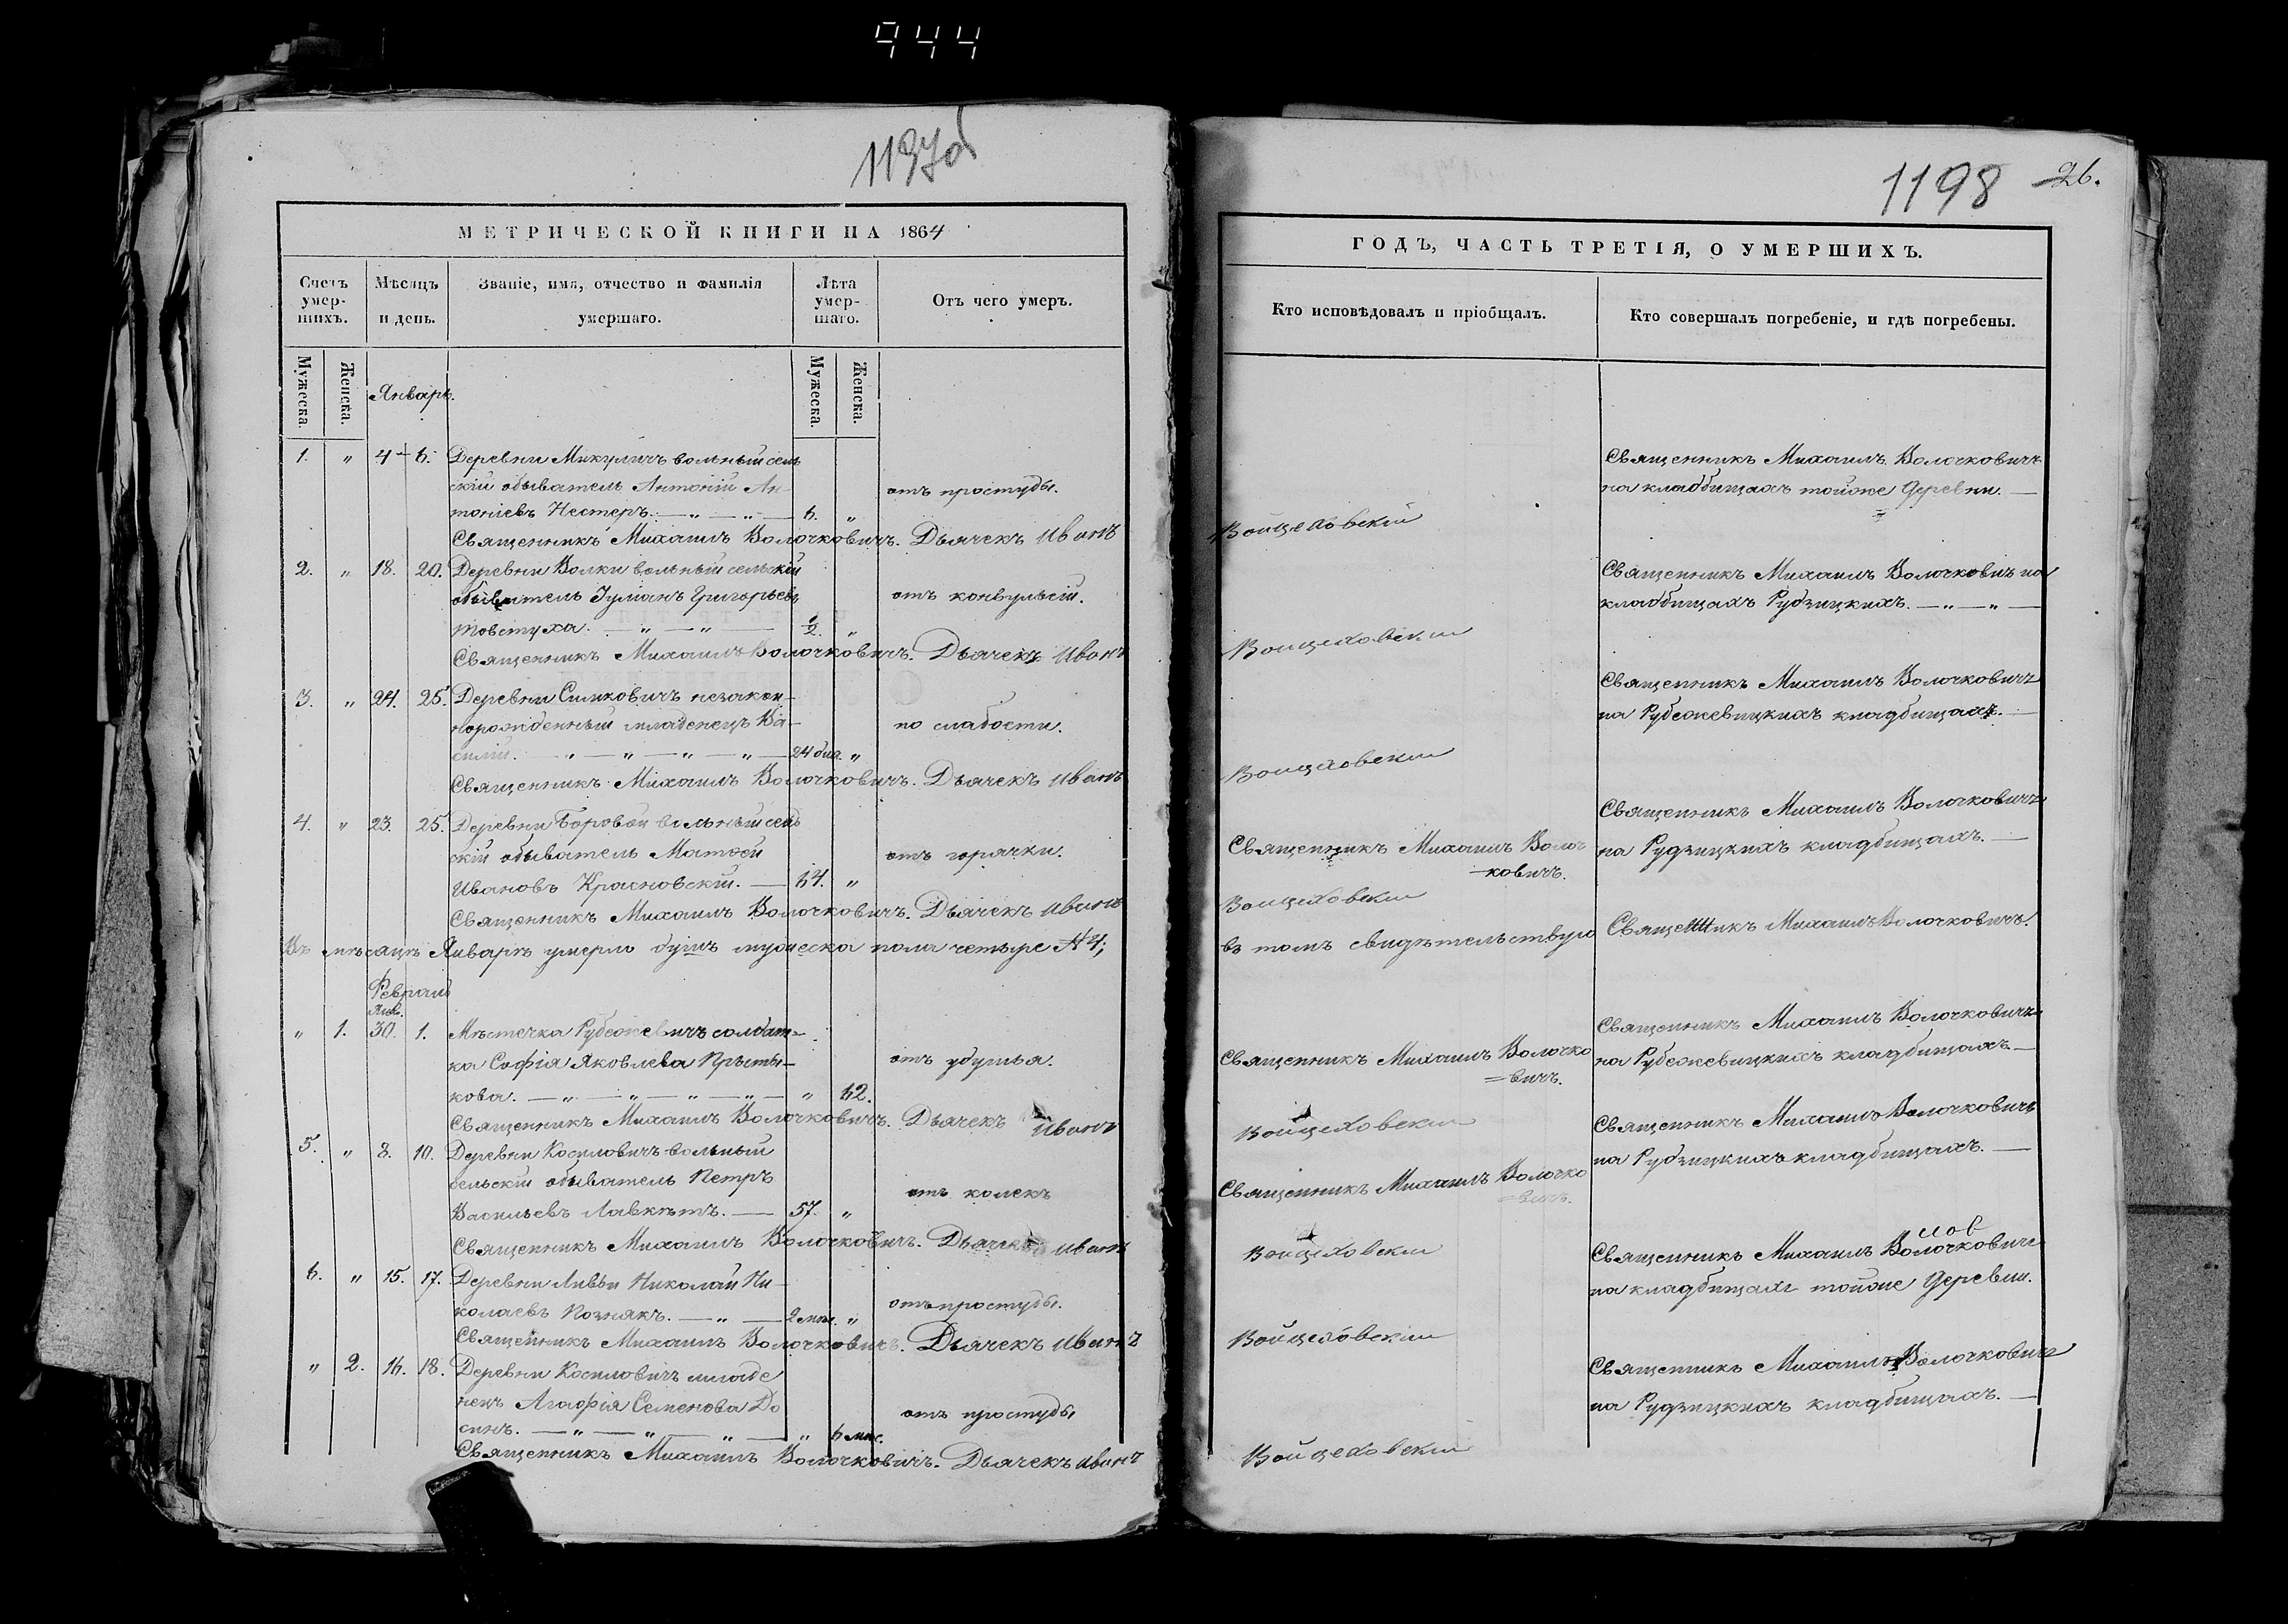 944
1197об
МЕТРИЧЕСКОЙ КНИГИ НА 1864
Счетъ умер-шихъ.
Мѣсяцъ и день.
Званіе, имя, отчество и фамилія умершаго.
Лѣта умер-шаго.
Отъ чего умеръ.
Мужеска.
Женска.
Январь.
Мужеска.
Женска.
1. " 4 6. Деревни Микуличъ вольный сель
скій обыватель Антоній Ан- отъ простуды.
тоніевъ Нестеръ. — " — " — 6. "
Священникъ Михаилъ Волочковичъ. Дьячекъ Иванъ
2. " 18. 20. Деревни Волки вольный сельскій
обыватель Іуліанъ Григорьевъ отъ конвульсій.
Товстуха. — " — " — ½. "
Священникъ Михаилъ Волочковичъ. Дьячекъ Иванъ
3. " 24. 25. Деревни Симковичъ незакон-
норожденный младенецъ Ва- по слабости.
силій. — " — " — " — " — 24 дня. "
Священникъ Михаилъ Волочковичъ. Дьячекъ Иванъ
4. " 23. 25. Деревни Боровой вольный сель
скій обыватель Матѳей отъ горячки.
Ивановъ Красновскій. — 64. "
Священникъ Михаилъ Волочковичъ. Дьячекъ Иванъ
Въ мѣсяцѣ Январѣ умерло душъ мужеска пола четыре № 4;
Февраль
Янв.
" 1. 30. 1. Мѣстечка Рубежевичъ солдат-
ка Софія Яковлева Прыты- отъ удушья.
кова. — " — " — " — " — " 62.
Священникъ Михаилъ Волочковичъ. Дьячекъ Иванъ
5. " 8. 10. Деревни Косиловичъ вольный
сельскій обыватель Петръ отъ колекъ
Васильевъ Лавкѣтъ. — 57. "
Священникъ Михаилъ Волочковичъ. Дьячекъ Иванъ
6. " 15. 17. Деревни Ливьи Николай Ни-
колаевъ Познякъ. — " — 2 мѣс. " отъ простуды.
Священникъ Михаилъ Волочковичъ. Дьячекъ Иванъ
" 2. 16. 18. Деревни Косиловичъ младе
нецъ Агафія Семенова До отъ простуды
синъ. — " — " — " — " 6 мѣс.
Священникъ Михаилъ Волочковичъ. Дьячекъ Иванъ
1198 26.
ГОДЪ, ЧАСТЬ ТРЕТІЯ, О УМЕРШИХЪ.
Кто исповѣдовалъ и пріобщалъ.
Кто совершалъ погребеніе, и гдѣ погребены.
Священникъ Михаилъ Волочковичъ
на кладбищахъ тойже деревни. —
Войцеховскій
Священникъ Михаилъ Волочковичъ на
кладбищахъ Рудзицкихъ. — " — " —
Войцеховскій
Священникъ Михаилъ Волочковичъ
на Рубежевицкихъ кладбищахъ. —
Войцеховскій
Священникъ Михаилъ Волочковичъ
на Рудзицкихъ кладбищахъ. —
Священникъ Михаилъ Волоч
ковичъ.
Войцеховскій
въ томъ свидѣтельствую Священникъ Михаилъ Волочковичъ.
Священникъ Михаилъ Волочковичъ
на Рубежевицкихъ кладбищахъ. —
Священникъ Михаилъ Волочко
=вичъ.
Войцеховскій
Священникъ Михаилъ Волочковичъ
на Рудзицкихъ кладбищахъ. —
Священникъ Михаилъ Волочко
=вичъ.
Войцеховскій
Священникъ Михаилъ Волочковичъ
на кладбищахъ тойже деревни.
Войцеховскій
Священникъ Михаилъ Волочковичъ
на Рудзицкихъ кладбищахъ. —
Войцеховскій